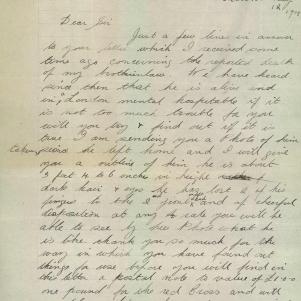 Dear Sir
Just a few lines in answer
to your letter which I received some
time ago concerning the reported death
of my brotherinlaw. We have heard
since then that he is alive and
in a London mental hospital if it
is not too much trouble to you
will you try & find out if it is
true I am sending you a Photo of him
taken since he left home and I will give
you a outline of him, he is about
5 feet 4 & 6 inches in height
dark hair & eyes he has lost 2 of his
fingers to the 2 joint and of cheerful
disposition at any rate you will be
able to see by the Photo what he
is like thank you so much for the
way in which you have found out
things for us before you will find in
this letter a postal note to value of £1-0-0
one pound for the red Cross and will